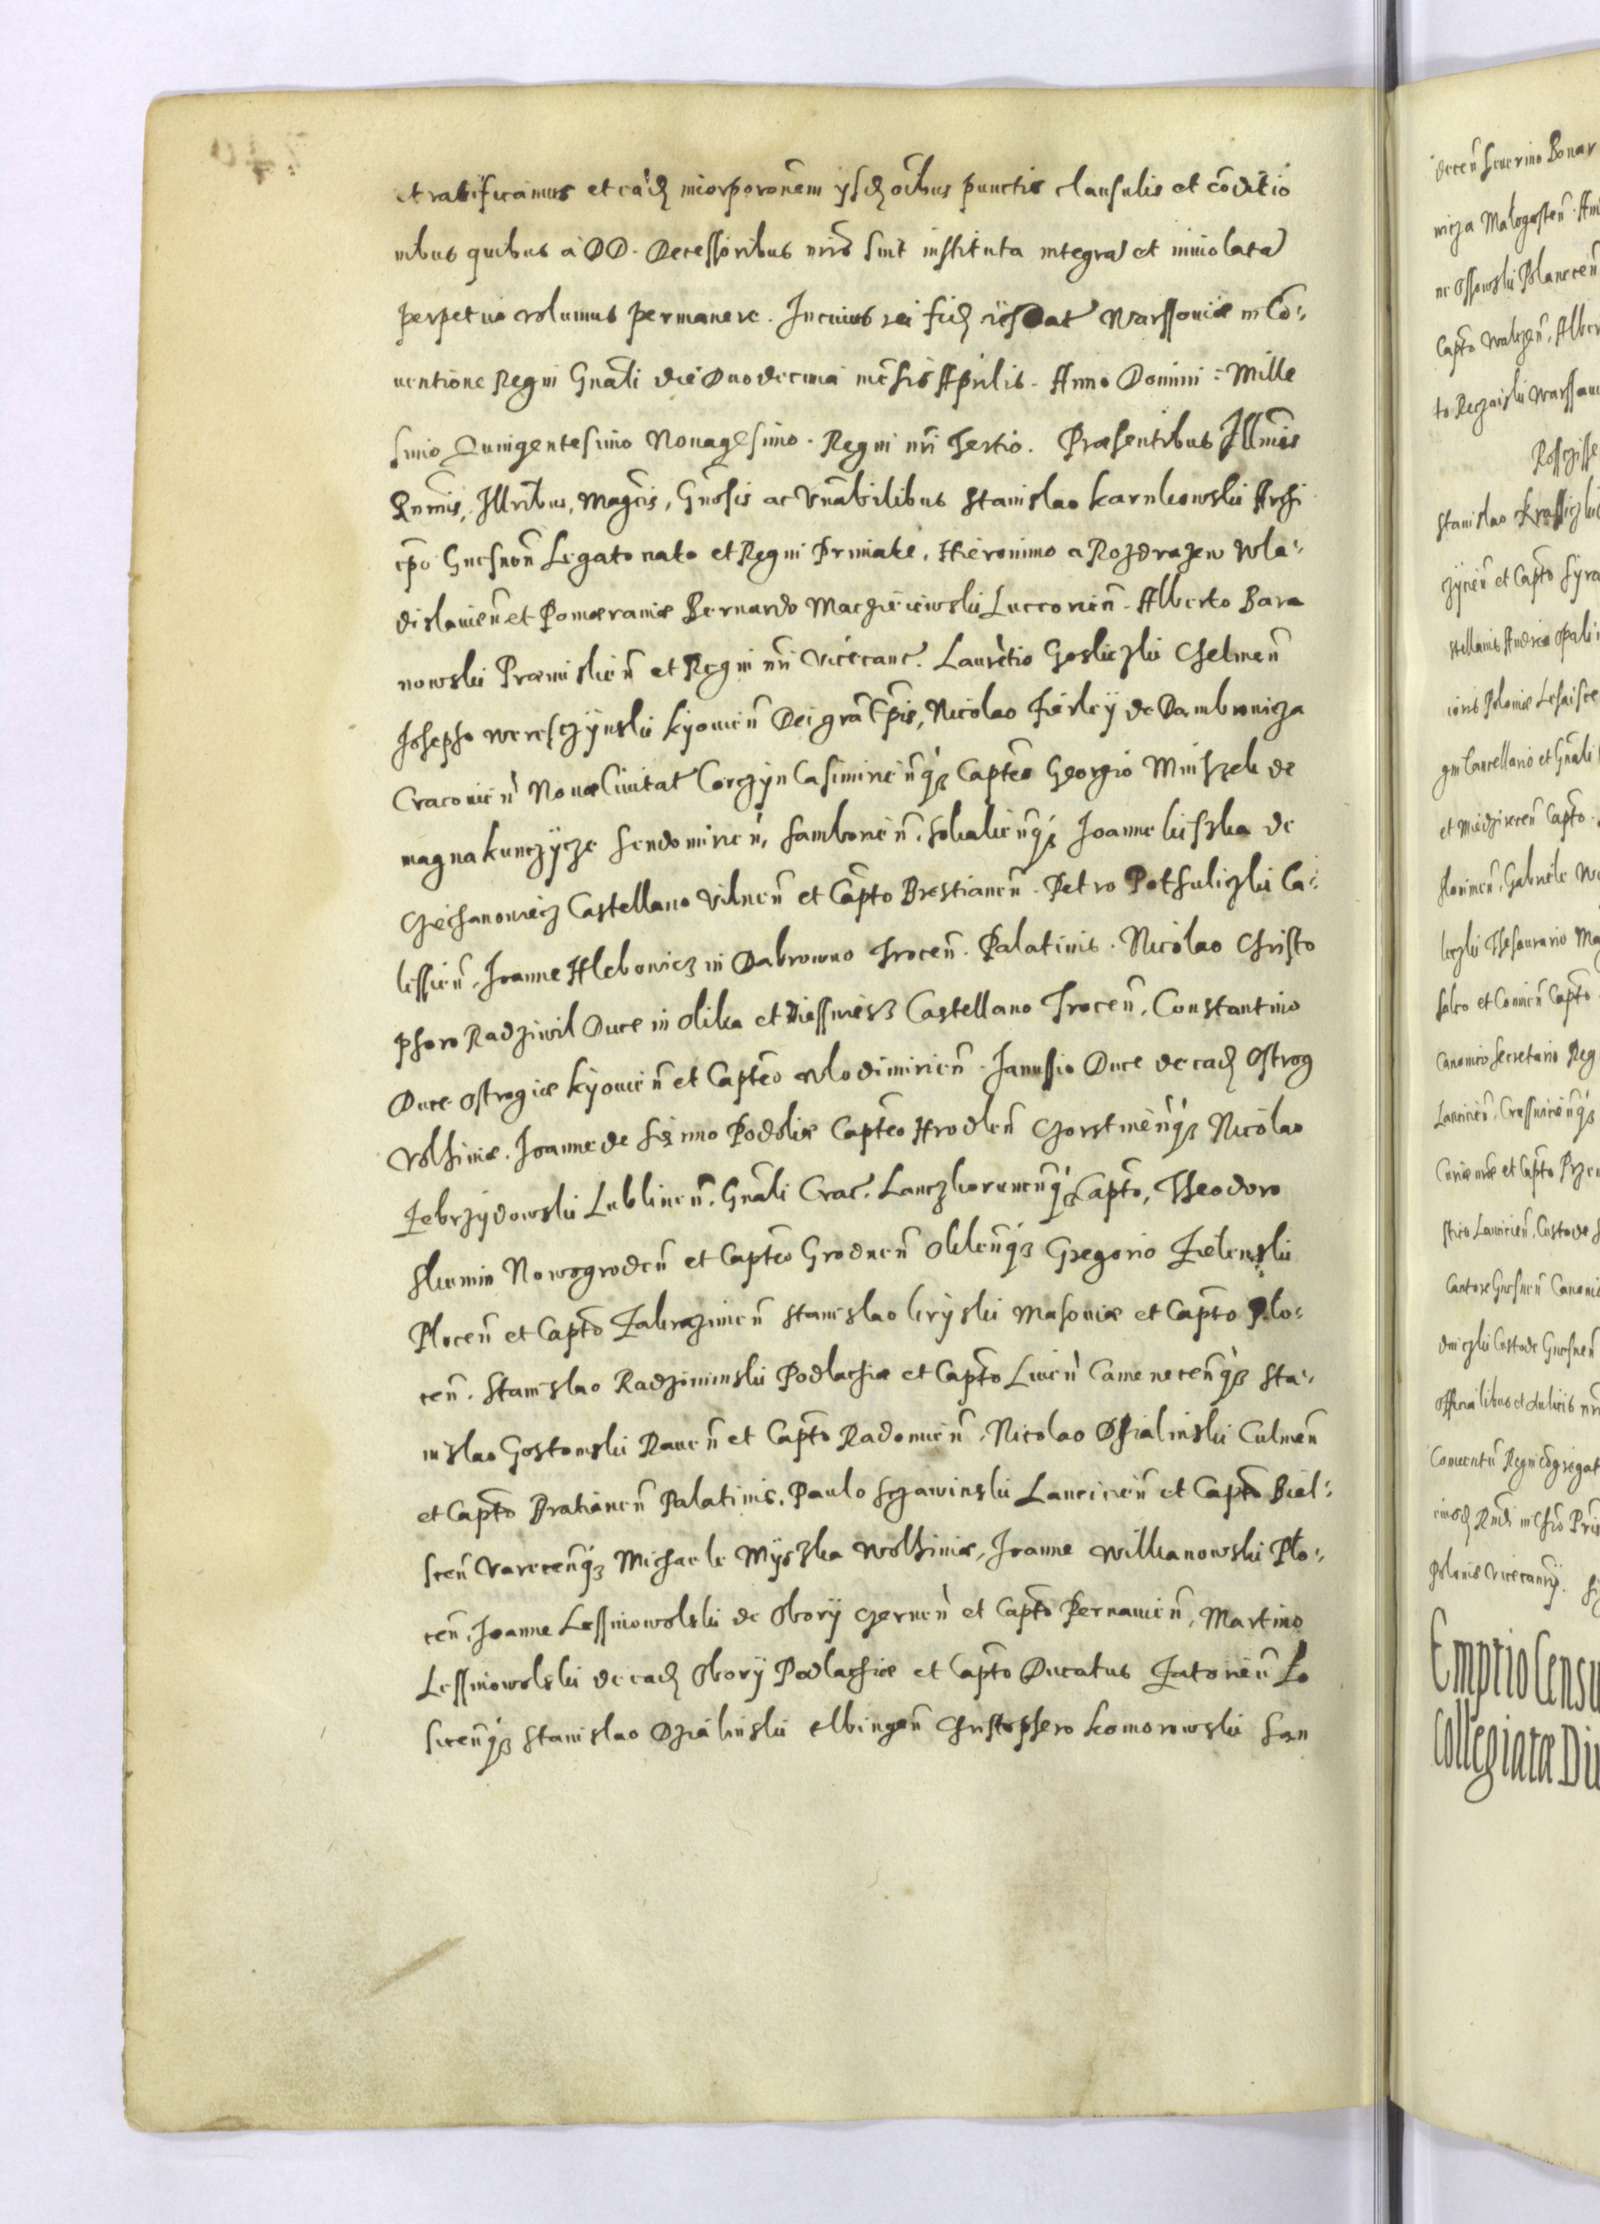 et ratificamus et eãdẽ incorporonem ysdẽ oĩbus punctis clausulis et cõditio
nibus quibus a DD. Decessoribus nris sint instituta integra et inviolata
perpetuo volumus permanere. In cuius rei fidẽ Dat Warssoviæ in Co:
ventione Regni Gnãli die Duodecima mẽsis Aprilis. Anno Domini: Mille
simo Quingentesimo Nonagesimo. Regni nri Tertio. Præsentibus Illmis
Rnmis, Illribus, Magcis, Gnosis ac Vnãbilibus Stanislao Karnkowski Archi
epo Gnesnen̄ Legato nato et Regni Primate. Hieronimo a Rozdrazew Wla:
dislavien̄ et Pomeraniæ Bernardo Maczieiowski Lucconien̄. Alberto Bara
nowski Præmislien̄ et Regni nri Vicecanc. Laurẽtio Gosliczki Chelmen̄
Josepho Weresczÿnski Kyovien̄ Dei gratĩ Epis, Nicolao Firleÿ de Dambrowicza
Cracovien̄ Novæ Civitat Corczÿn Casimirien̄q3 Capteo Georgio Mniszek de
magna kunczÿcze Sendomirien̄, Samborien̄, Sokalien̄q3 Joanne kiszka de
Cziechanowiecz Castellano Vilnen̄ et Capto Brestianen̄. Petro Pothuliczki Ca:
lissien̄. Joanne Hlebowicz in Dabrowno Trocen̄. Palatinis. Nicolao Christo
phoro Radziwil Duce in Olika et Niesswiesz Castellano Trocen̄. Constantino
Duce Ostrogiæ Kÿovien̄ et Capteo Wlodimirien̄. Janussio Duce de eadẽ Ostrog
Volhiniæ. Joanne de Sienno Podoliæ Capteo Hrodlen̄ Nicolao
Zebrzÿdowski Lublinen̄. Gnãli Crac. Lanczkorunen̄q3 Capto, Theodoro
Skumin Nowogroden̄ et Capteo Grodnen̄ Olilen̄q3 Gregorio Zielenski
Plocen̄ et Capto Zakrozimen̄ Stanislao krÿski Masoviæ et Capto Plo:
cen̄. Stanislao Radziminski Podlachiæ et Capto Liwen̄ Camenecen̄q3 Sta:
nislao Gostomski Raven̄ et Capto Radomien̄, Nicolao Dzialinski Culmen̄
et Capto Bratianen̄ Palatinis. Paulo Sczawinski Lancicien̄ et Capto Biel:
scen̄ Varecen̄q3 Michaele Mÿszka Wolhiniæ, Joanne Wilkanowski Plo:
cen̄. Joanne Lessniowolski de Oborÿ Czernen̄ et Capto Pernavien̄, Martino
Lessniowolski de eadẽ Oborÿ Podlachiæ et Capto Ducatus Zatorien̄ Lo
sicen̄q3 Stanislao Dzialinski Elbingen̄ Christophero Komorowski San
decen̄ Severino Bonar
nicza Malogosten̄.
ne Ossowski Polanecen̄
Capto Walczen̄, Alber
to Reczaiski Warssav
Stanislao Krassiczki
et Capto Syra
stellanis Andrea Opali
ioris Poloniæ
gni Cancellario et Gnãli
et Miedzirecen̄ Capto.
Slonimen̄, Gabriele Wo
Thesaurario Ma
Canonico Secretario Reg
et Capto Prze
Lancicien̄, Custode
Cantore Gnesnen̄ Canonic
Custode Gnesnen̄
Officialibus et Aulicis nr
Conventu Regni cõgregat
Poloniæ Vicecancÿ.
Emptio Censu
Collegiatæ Di